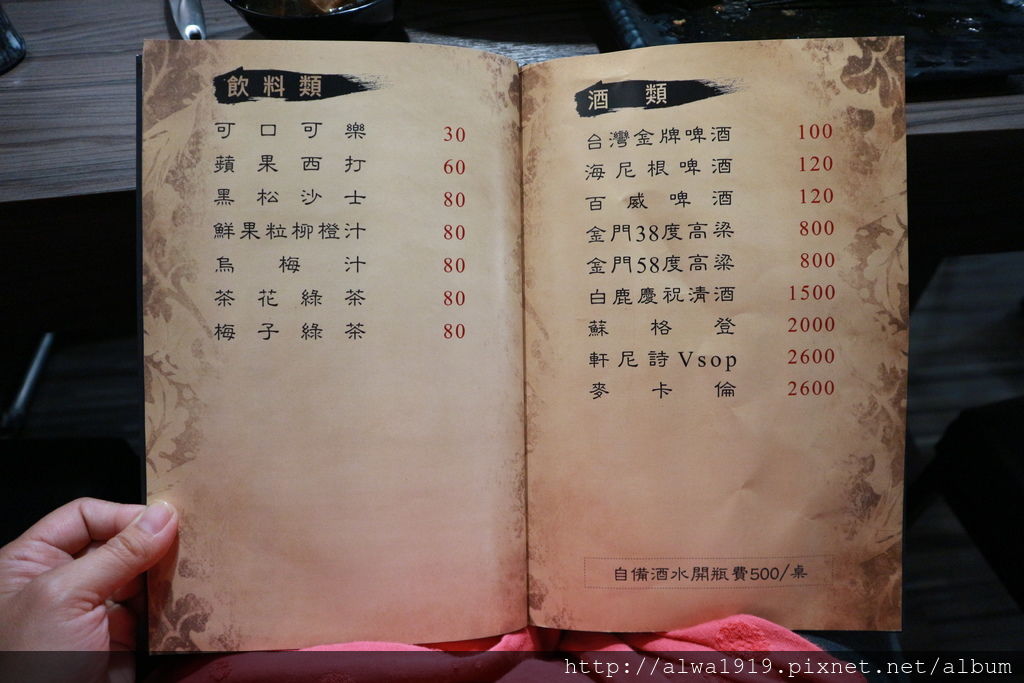 飲料類
可口可樂 30
蘋果西打 60
黑松沙士 80
鮮果粒柳橙汁 80
烏梅汁 80
茶花綠茶 80
梅子綠茶 80
酒類
台灣金牌啤酒 100
海尼根啤酒 120
百威啤酒 120
金門38度高梁 800
金門58度高梁 800
白鹿慶祝清酒 1500
蘇格登 2000
軒尼詩Vsop 2600
麥卡倫 2600
自備酒水開瓶費500/桌
http://alwa1919.pixnet.net/album